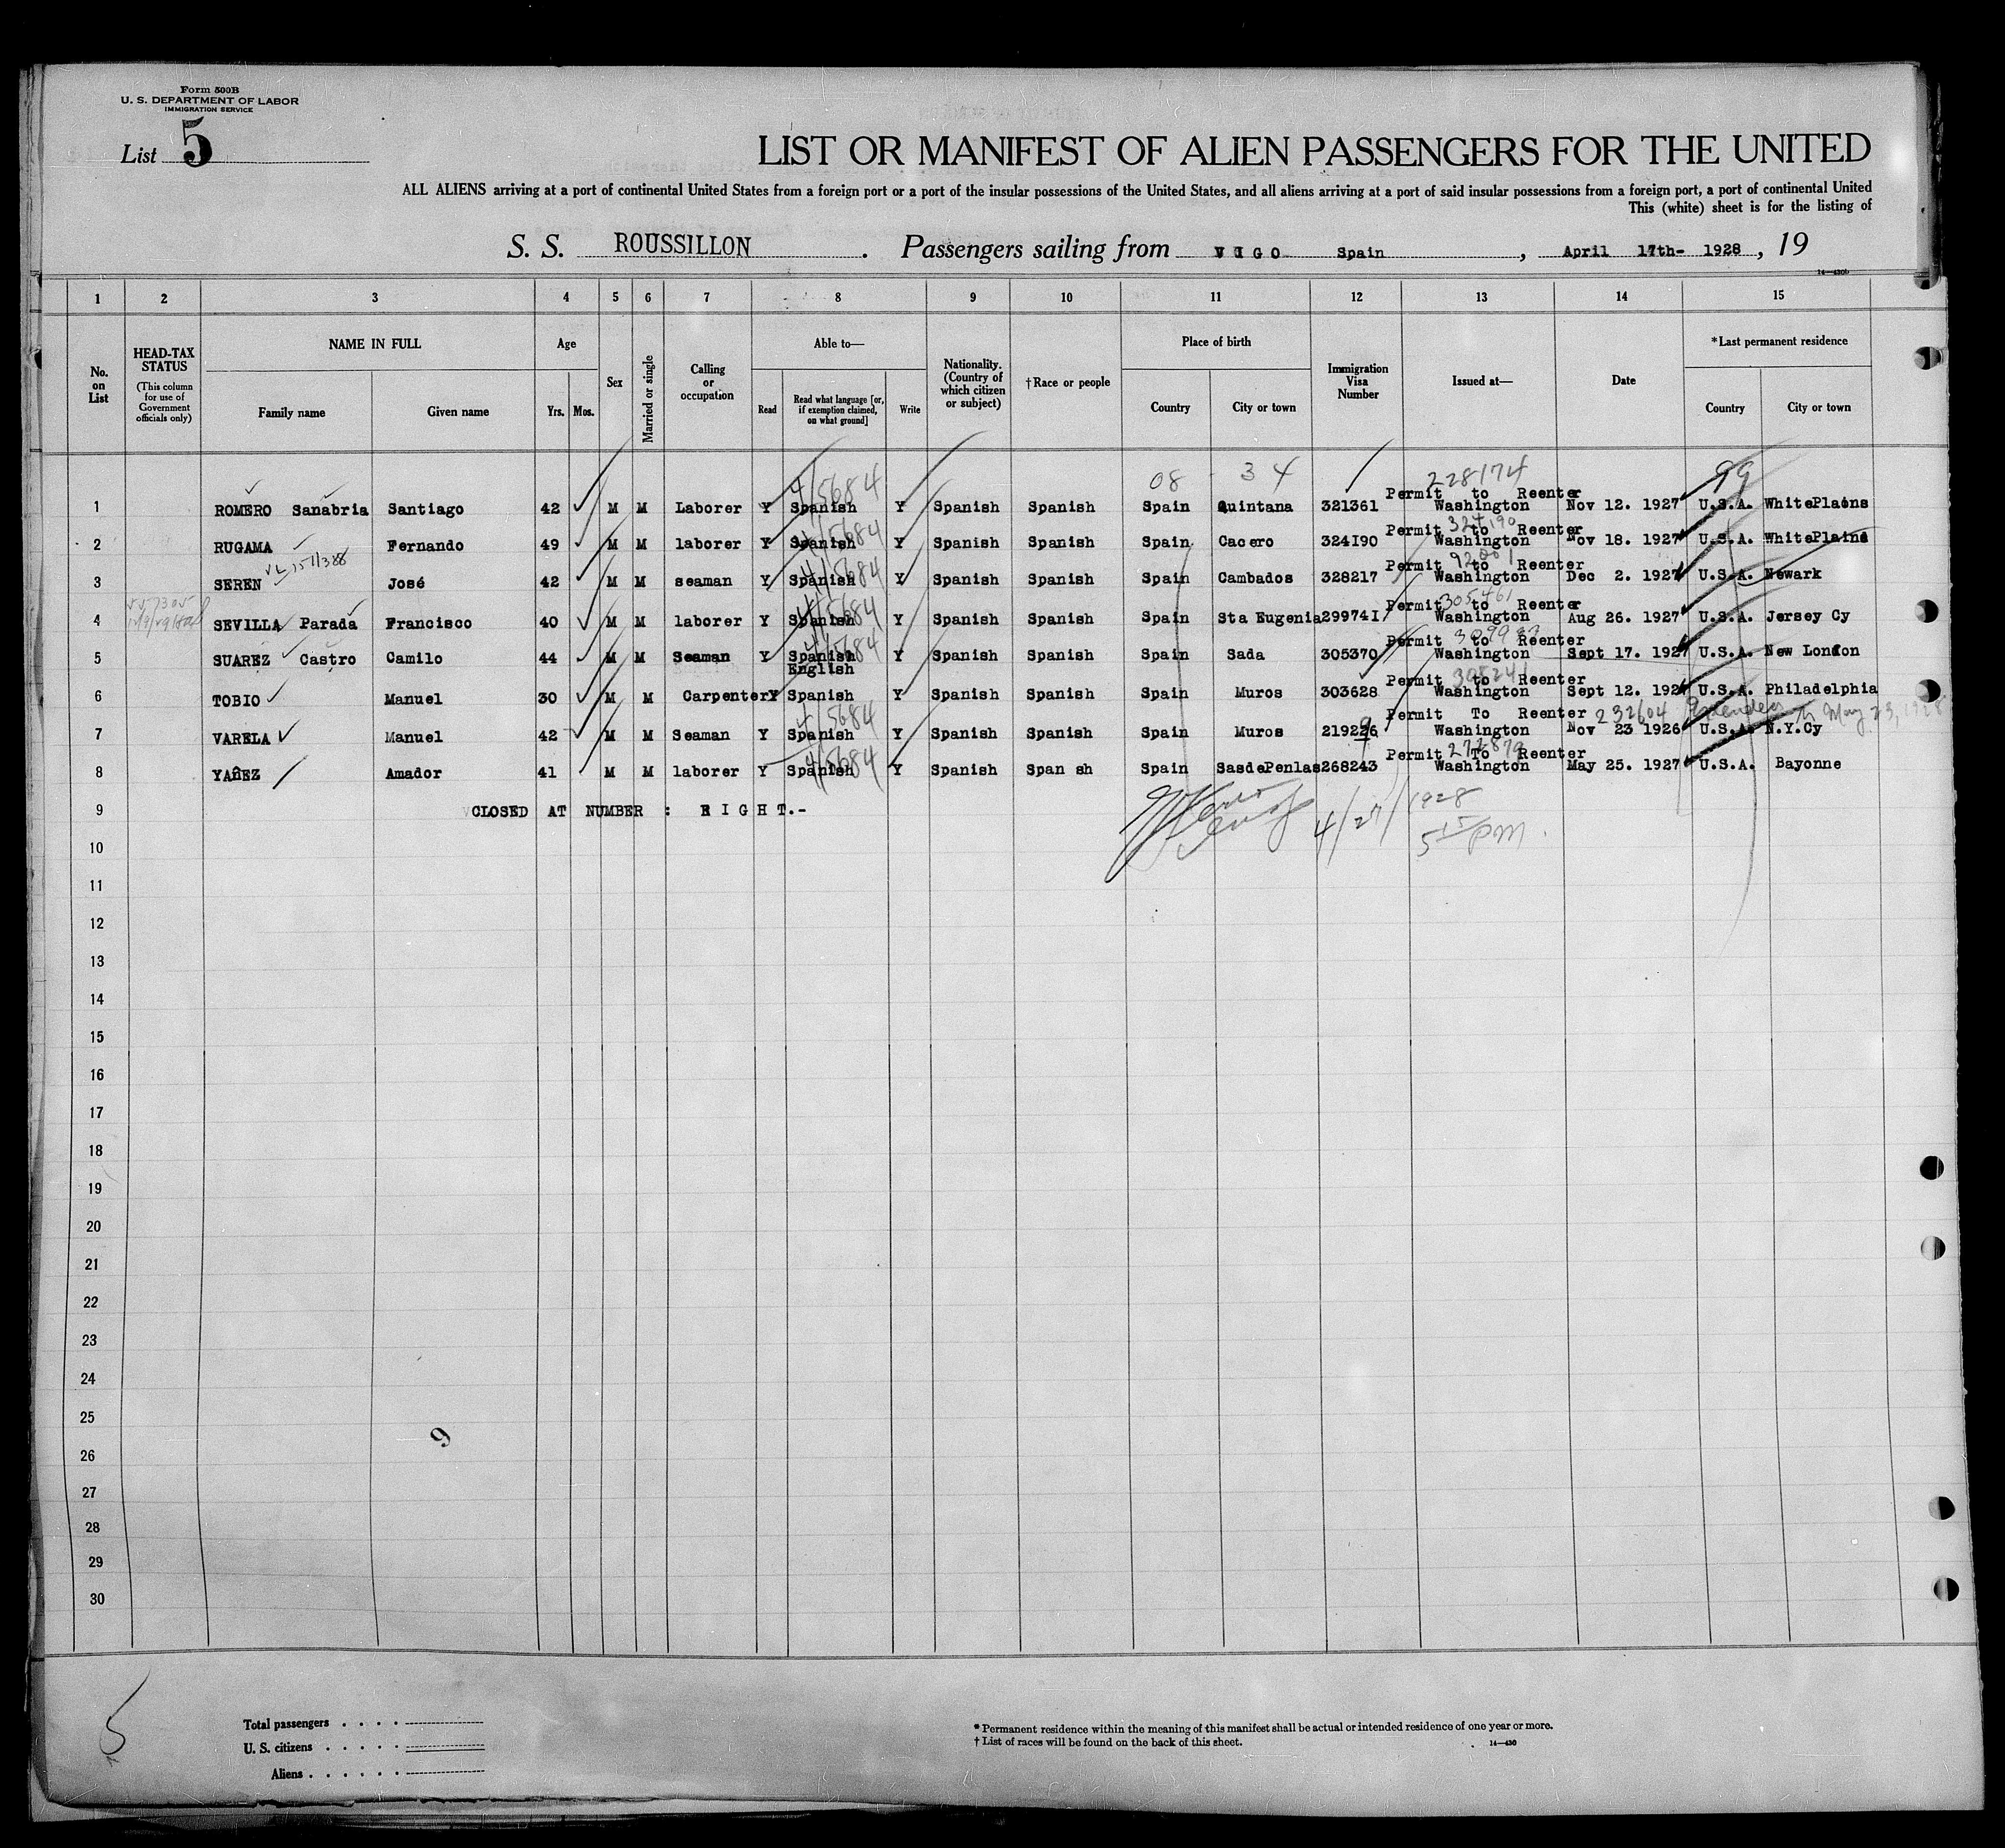 Form 500B
U. S. DEPARTMENT OF LABOR
IMMIGRATION SERVICE
List 5
LIST OR MANIFEST OF ALIEN PASSENGERS FOR THE UNITED
ALL ALIENS arriving at a port of continental United States from a foreign port or a port of the insular possessions of the United States, and all aliens arriving at a port of said insular possessions from a foreign port, a port of continental United
This (white) sheet is for the listing of
S. S. ROUSSILLON. Passengers sailing from VIGO Spain, April 17th- 1928, 19
14—430b
1 2 3 4 5 6 7 8 9 10 11 12 13 14 15
No. on List
HEAD-TAX STATUS (This column for use of Government officials only)
NAME IN FULL
Family name
Given name
Age
Yrs. Mos.
Sex
Married or single
Calling or occupation
Able to—
Read
Read what language [or, if exemption claimed, on what ground]
Write
Nationality. (Country of which citizen or subject)
†Race or people
Place of birth
Country
City or town
Immigration Visa Number
Issued at—
Date
*Last permanent residence
Country
City or town
08 34 228174 99
1 ROMERO Sanabria Santiago 42 M M Laborer Y Spanish 4/5684 Y Spanish Spanish Spain Quintana 321361 Permit to Reenter Washington Nov 12. 1927 U.S.A. WhitePlains
2 RUGAMA Fernando 49 M M laborer Y Spanish 4/5684 Y Spanish Spanish Spain Cacero 324190 Permit to Reenter 324190 Washington Nov 18. 1927 U.S.A. WhitePlains
3 SEREN 151/388 José 42 M M seaman Y Spanish 4/5684 Y Spanish Spanish Spain Cambados 328217 Permit to Reenter Washington Dec 2. 1927 U.S.A. Newark
4 SEVILLA Parada Francisco 40 M M laborer Y Spanish 4/5684 Y Spanish Spanish Spain Sta Eugenia 299741 Permit to Reenter 305461 Washington Aug 26. 1927 U.S.A. Jersey Cy
5 SUAREZ Castro Camilo 44 M M Seaman Y Spanish 4/5684 English Y Spanish Spanish Spain Sada 305370 Permit to Reenter Washington Sept 17. 1927 U.S.A. New London
6 TOBIO Manuel 30 M M Carpenter Y Spanish Y Spanish Spanish Spain Muros 303628 Permit to Reenter Washington Sept 12. 192 U.S.A. Philadelphia
7 VARELA Manuel 42 M M Seaman Y Spanish 4/5684 Y Spanish Spanish Spain Muros 219226 9 Permit To Reenter Washington 232604 Nov 23 1926 U.S.A. N.Y.Cy to May 23, 1928
8 YAÑEZ Amador 41 M M laborer Y Spanish 4/5684 Y Spanish Span sh Spain SasdePenlas 268243 Permit To Reenter 272879 Washington May 25. 1927 U.S.A. Bayonne
9 CLOSED AT NUMBER : EIGHT.-
4/27/1928
5 15 pm.
10
11
12
13
14
15
16
17
18
19
20
21
22
23
24
25
9
26
27
28
29
30
5
Total passengers . . . .
U. S. citizens . . . . .
Aliens . . . . . .
* Permanent residence within the meaning of this manifest shall be actual or intended residence of one year or more.
† List of races will be found on the back of this sheet.
14—430